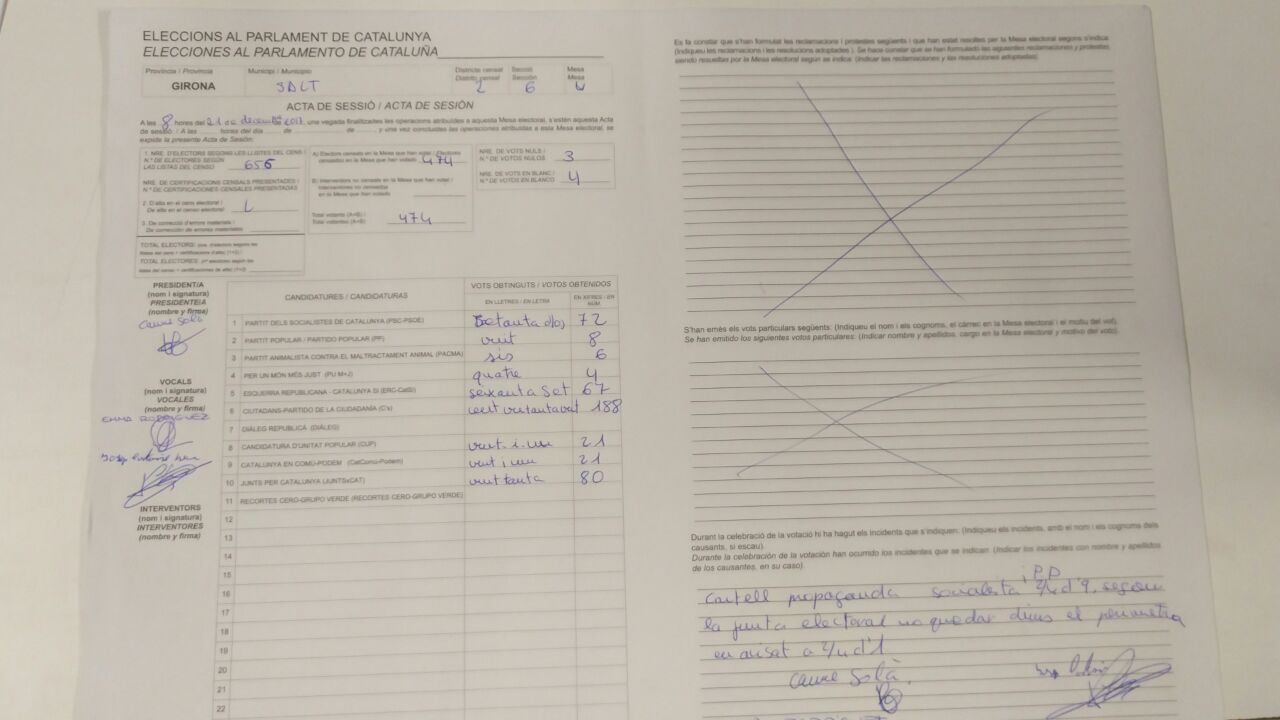 ELECCIONS AL PARLAMENT DE CATALUNYA
ELECCIONES AL PARLAMENTO DE CATALUÑA
Província / Provincia
GIRONA
Municipi / Municipio
SALT
Districte censal
Distrito censal
2
Secció
Sección
6
Mesa
Mesa
U
ACTA DE SESSIÓ / ACTA DE SESIÓN
A les 8 hores del 21 de desembre 2017, una vegada finalitzades les operacions atribuïdes a aquesta Mesa electoral, s'estén aquesta Acta
de sessió / A las ........ hores del día ........ de ........ de ........, y una vez concluidas las operaciones atribuidas a esta Mesa electoral, se
expide la presente Acta de Sesión:
1. NRE. D'ELECTORS SEGONS LES LLISTES DEL CENS /
N.º DE ELECTORES SEGÚN
LAS LISTAS DEL CENSO
656
NRE. DE CERTIFICACIONS CENSALS PRESENTADES /
N.º DE CERTIFICACIONES CENSALES PRESENTADAS
2. D'alta en el cens electoral /
De alta en el censo electoral
3. De correcció d'errors materials /
De corrección de errores materiales
TOTAL ELECTORS: (nre. d'electors segons les
llistes del cens + certificacions d'alta) (1+2) /
TOTAL ELECTORES: (nº electores según las
listas del censo + certificaciones de alta) (1+2)
A) Electors censats en la Mesa que han votat / Electores
censados en la Mesa que han votado 474
B) Interventors no censats en la Mesa que han votat /
Interventores no censados
en la Mesa que han votado
Total votants (A+B) /
Total votantes (A+B) 474
NRE. DE VOTS NULS /
N.º DE VOTOS NULOS 3
NRE. DE VOTS EN BLANC /
N.º DE VOTOS EN BLANCO 4
PRESIDENT/A
(nom i signatura)
PRESIDENTE/A
(nombre y firma)
Carme Solà
VOCALS
(nom i signatura)
VOCALES
(nombre y firma)
EMMA RODRIGUEZ
Josep
INTERVENTORS
(nom i signatura)
INTERVENTORES
(nombre y firma)
CANDIDATURES / CANDIDATURAS
VOTS OBTINGUTS / VOTOS OBTENIDOS
EN LLETRES / EN LETRA
EN XIFRES / EN NÚM.
1 PARTIT DELS SOCIALISTES DE CATALUNYA (PSC-PSOE) setanta dos 72
2 PARTIT POPULAR / PARTIDO POPULAR (PP) vuit 8
3 PARTIT ANIMALISTA CONTRA EL MALTRACTAMENT ANIMAL (PACMA) sis 6
4 PER UN MÓN MÉS JUST (PU M+J) quatre 4
5 ESQUERRA REPUBLICANA - CATALUNYA SÍ (ERC-CatSí) seixanta set 67
6 CIUTADANS-PARTIDO DE LA CIUDADANÍA (C's) cent vuitantavuit 188
7 DIÀLEG REPUBLICÀ (DIÀLEG)
8 CANDIDATURA D'UNITAT POPULAR (CUP) vint-i-un 21
9 CATALUNYA EN COMÚ-PODEM (CatComú-Podem) vint i un 21
10 JUNTS PER CATALUNYA (JUNTSxCAT) vuitanta 80
11 RECORTES CERO-GRUPO VERDE (RECORTES CERO-GRUPO VERDE)
12
13
14
15
16
17
18
19
20
21
22
Es fa constar que s'han formulat les reclamacions i protestes següents i que han estat resoltes per la Mesa electoral segons s'indica
(Indiqueu les reclamacions i les resolucions adoptades). Se hace constar que se han formulado las siguientes reclamaciones y protestas,
siendo resueltas por la Mesa electoral según se indica: (Indicar las reclamaciones y las resoluciones adoptadas).
S'han emès els vots particulars següents: (Indiqueu el nom i els cognoms, el càrrec en la Mesa electoral i el motiu del vot).
Se han emitido los siguientes votos particulares: (Indicar nombre y apellidos, cargo en la Mesa electoral y motivo del voto).
Durant la celebració de la votació hi ha hagut els incidents que s'indiquen: (Indiqueu els incidents, amb el nom i els cognoms dels
causants, si escau).
Durante la celebración de la votación han ocurrido los incidentes que se indican: (Indicar los incidentes con nombre y apellidos
de los causantes, en su caso).
i PP
Cartell propaganda socialista 2/4 d'9, segons
la junta electoral no quedar dins el perimetre
en ausat a 2/4 d'1
Carme Solà.
Josep